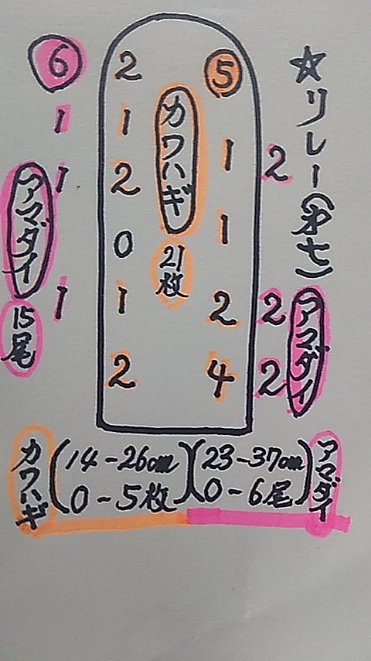 ☆リレー(第七)
アマダイ
2
2
2
5
1
1
2
4
カワハギ
21枚
2
1
2
0
1
2
6
1
1
1
アマダイ
15尾
カワハギ(14-26cm
0-5枚)(23-37cm
0-6尾)アマダイ